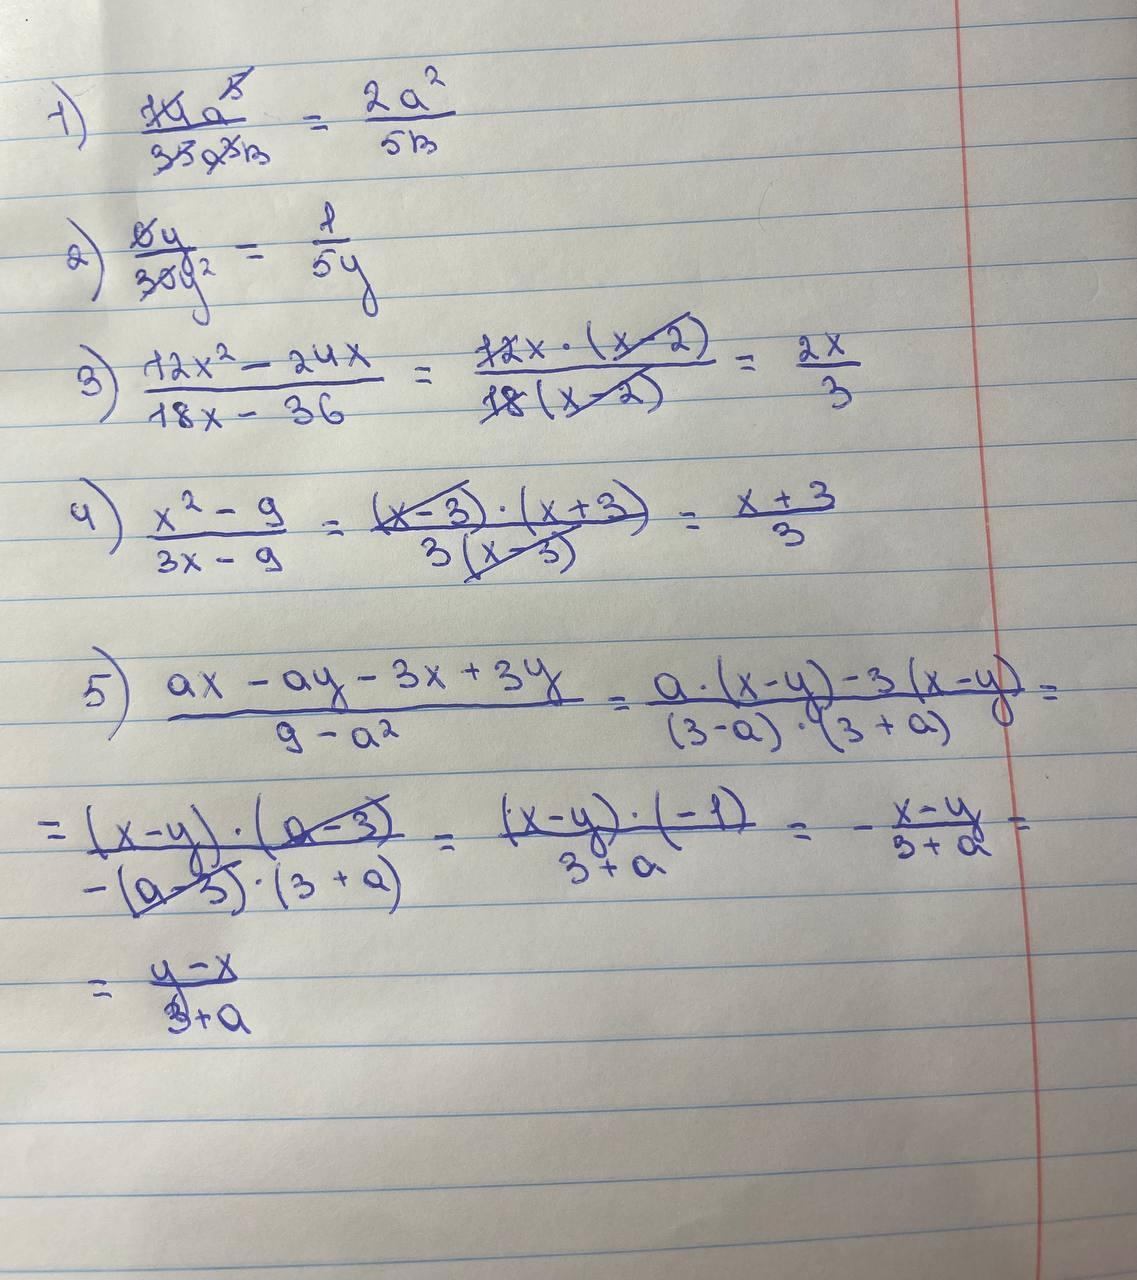 1) 14a⁵/35a³в = 2a²/5в
2) 6y/30y² = 1/5y
3) (12x² - 24x)/(18x - 36) = 12x · (x - 2)/18(x - 2) = 2x/3
4) (x² - 9)/(3x - 9) = (x - 3) · (x + 3)/3(x - 3) = (x + 3)/3
5) (ax - ay - 3x + 3y)/(9 - a²) = (a · (x - y) - 3(x - y))/((3 - a) · (3 + a)) =
= (x - y) · (a - 3)/(-(a - 3) · (3 + a)) = (x - y) · (-1)/(3 + a) = - (x - y)/(3 + a) =
= (y - x)/(3 + a)